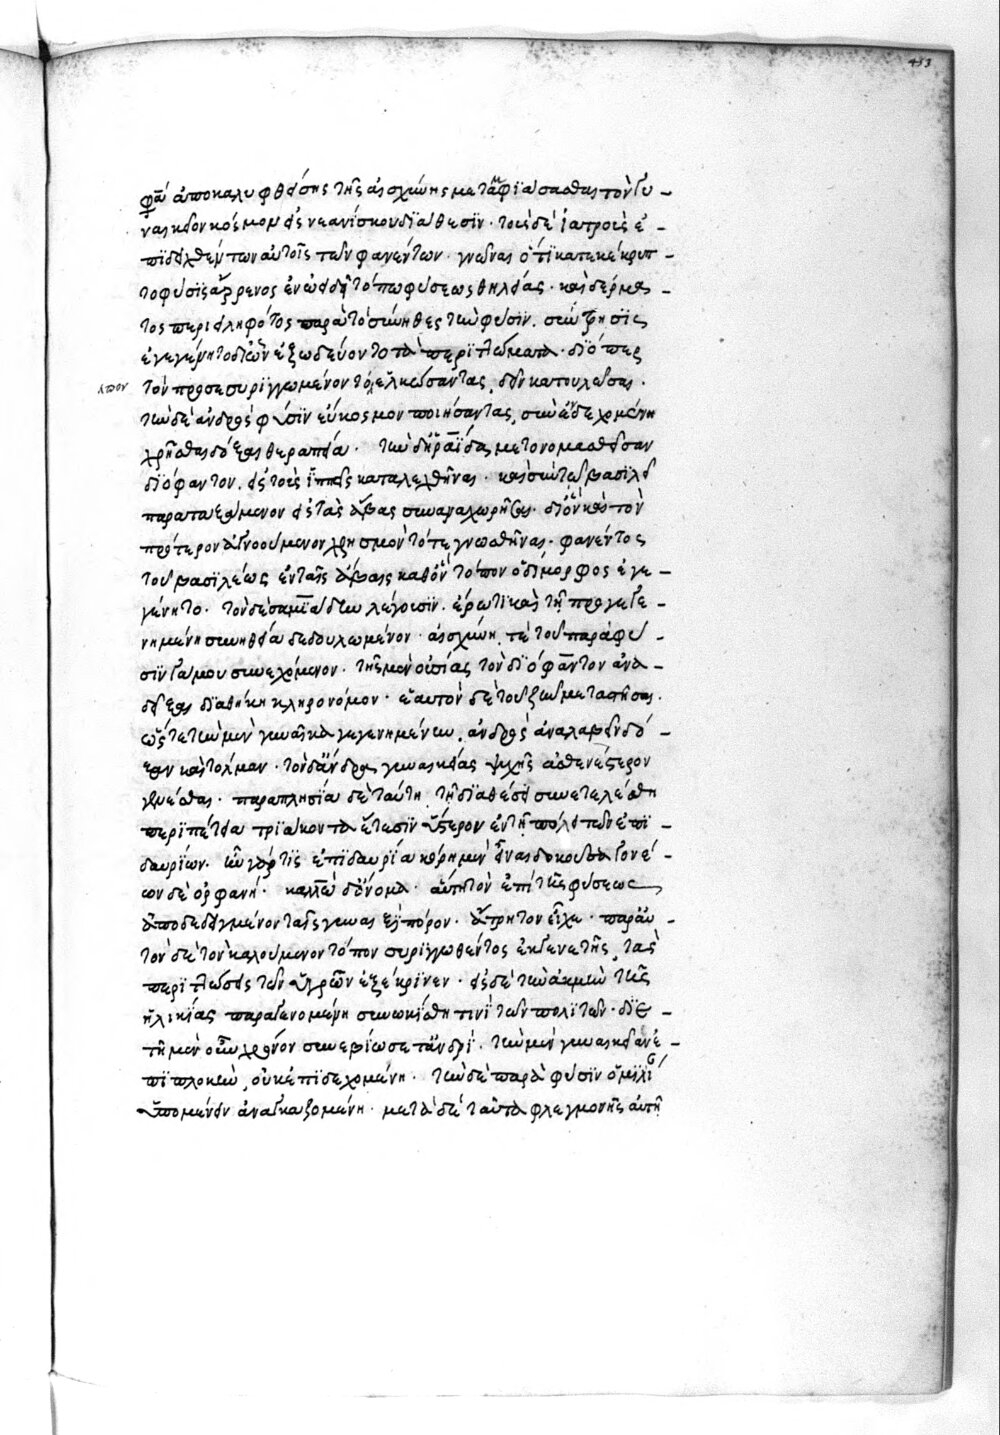 453
φαν ἀποκαλυφθείσης τῆς αἰσχύνης μεταμφιάσασθαι τὸν γυ-
ναικεῖον κόσμον εἰς νεανίσκου διάθεσιν· τοὺς δὲ ἰατροὺς ἐ-
πιδειχθέντων αὐτοῖς τῶν φανέντων· γνῶναι ὅτι κατεκέκρυπ-
το φύσις ἄρρενος ἐν ὠοειδεῖ τόπω φύσεως θηλείας· καὶ δέρμα-
τος περιειληφότος παρὰ τὸ σύνηθες τὴν φύσιν. σύντρησις
ἐγεγένητο δι' ὧν ἐξωδεύοντο τὰ περιττώματα. διόπερ
λιπον τὸν προσεσυριγγωμένον τό, ἑλκώσαντας, δεῖν κατουλῶσαι.
τὴν δὲ ἀνδρὸς φύσιν εὔκοσμον ποιήσαντας, συνενδεχομένη
χρῆσθαι δόξαι θεραπεία. τὴν δὲ ἡραΐδα, μετονομασθεῖσαν
διόφαντον. εἰς τοὺς ἱππεῖς καταλεχθῆναι. καὶ σὺν τῶ βασιλεῖ
παραταξάμενον εἰς τὰς ἄβας συναναχωρῆσαι. διὸ καὶ τὸν
πρότερον ἀγνοούμενον χρησμὸν τότε γνωσθῆναι. φανέντος
τοῦ βασιλέως ἐν ταῖς ἄβαις καθ' ὃν τόπον ὁ δίμορφος ἐγε-
γένητο. τὸν δὲ σαμιάδην λέγουσιν. ἔρωτι καὶ τῆ προγεγε-
νημένη συνηθεία δεδουλωμένον. αἰσχύνη, τε τοῦ παρὰ φύ-
σιν γάμου συνεχόμενον. τῆς μὲν οὐσίας τὸν διόφαντον ἀνα-
δεῖξαι διαθήκη κληρονόμον. ἑαυτὸν δὲ τοῦ ζῆν μεταστῆσαι.
ὥστε τὴν μὲν γυναῖκα γεγενημένην. ἀνδρὸς ἀναλαβεῖν δό-
ξαν καὶ τόλμαν. τὸν δ' ἄνδρα γυναικείας ψυχῆς ἀσθενέστερον
γενέσθαι. παραπλησία δὲ ταύτη, τῆ διαθέσει συνετελέσθη
περιπέτεια τριάκοντα ἔτεσιν ὕστερον ἐν τῆ πόλει τῶν ἐπι-
δαυρίων. ἦν γάρ τις ἐπιδαυρία κόρη μὲν εἶναι δοκοῦσα γονέ-
ων δὲ ὀρφανή. καλλὼ δ' ὄνομα. αὕτη τὸν ἐπὶ τῆς φύσεως
ἀποδεδειγμένον ταῖς γυναιξὶ πόρον. ἄτρητον εἶχε. παρὰ
τὸν δὲ τὸν καλούμενον τόπον συριγγωθέντος ἐκ γενετῆς, τὰς
περιττώσεις τῶν ὑγρῶν ἐξέκρινεν. εἰς δὲ τὴν ἀκμὴν τῆς
ἡλικίας παραγενομένη συνωκίσθη τινὶ τῶν πολιτῶν. διε-
τῆ μὲν οὖν χρόνον συνεβίωσε τἀνδρί. τὴν μὲν γυναικείαν ἐ-
πιπλοκὴν, οὐκ ἐπιδεχομένη. τὴν δὲ παρὰ φύσιν ὁμιλί
ὑπομένειν ἀναγκαζομένη. μετὰ δὲ ταῦτα φλεγμονῆς αὐτῆ